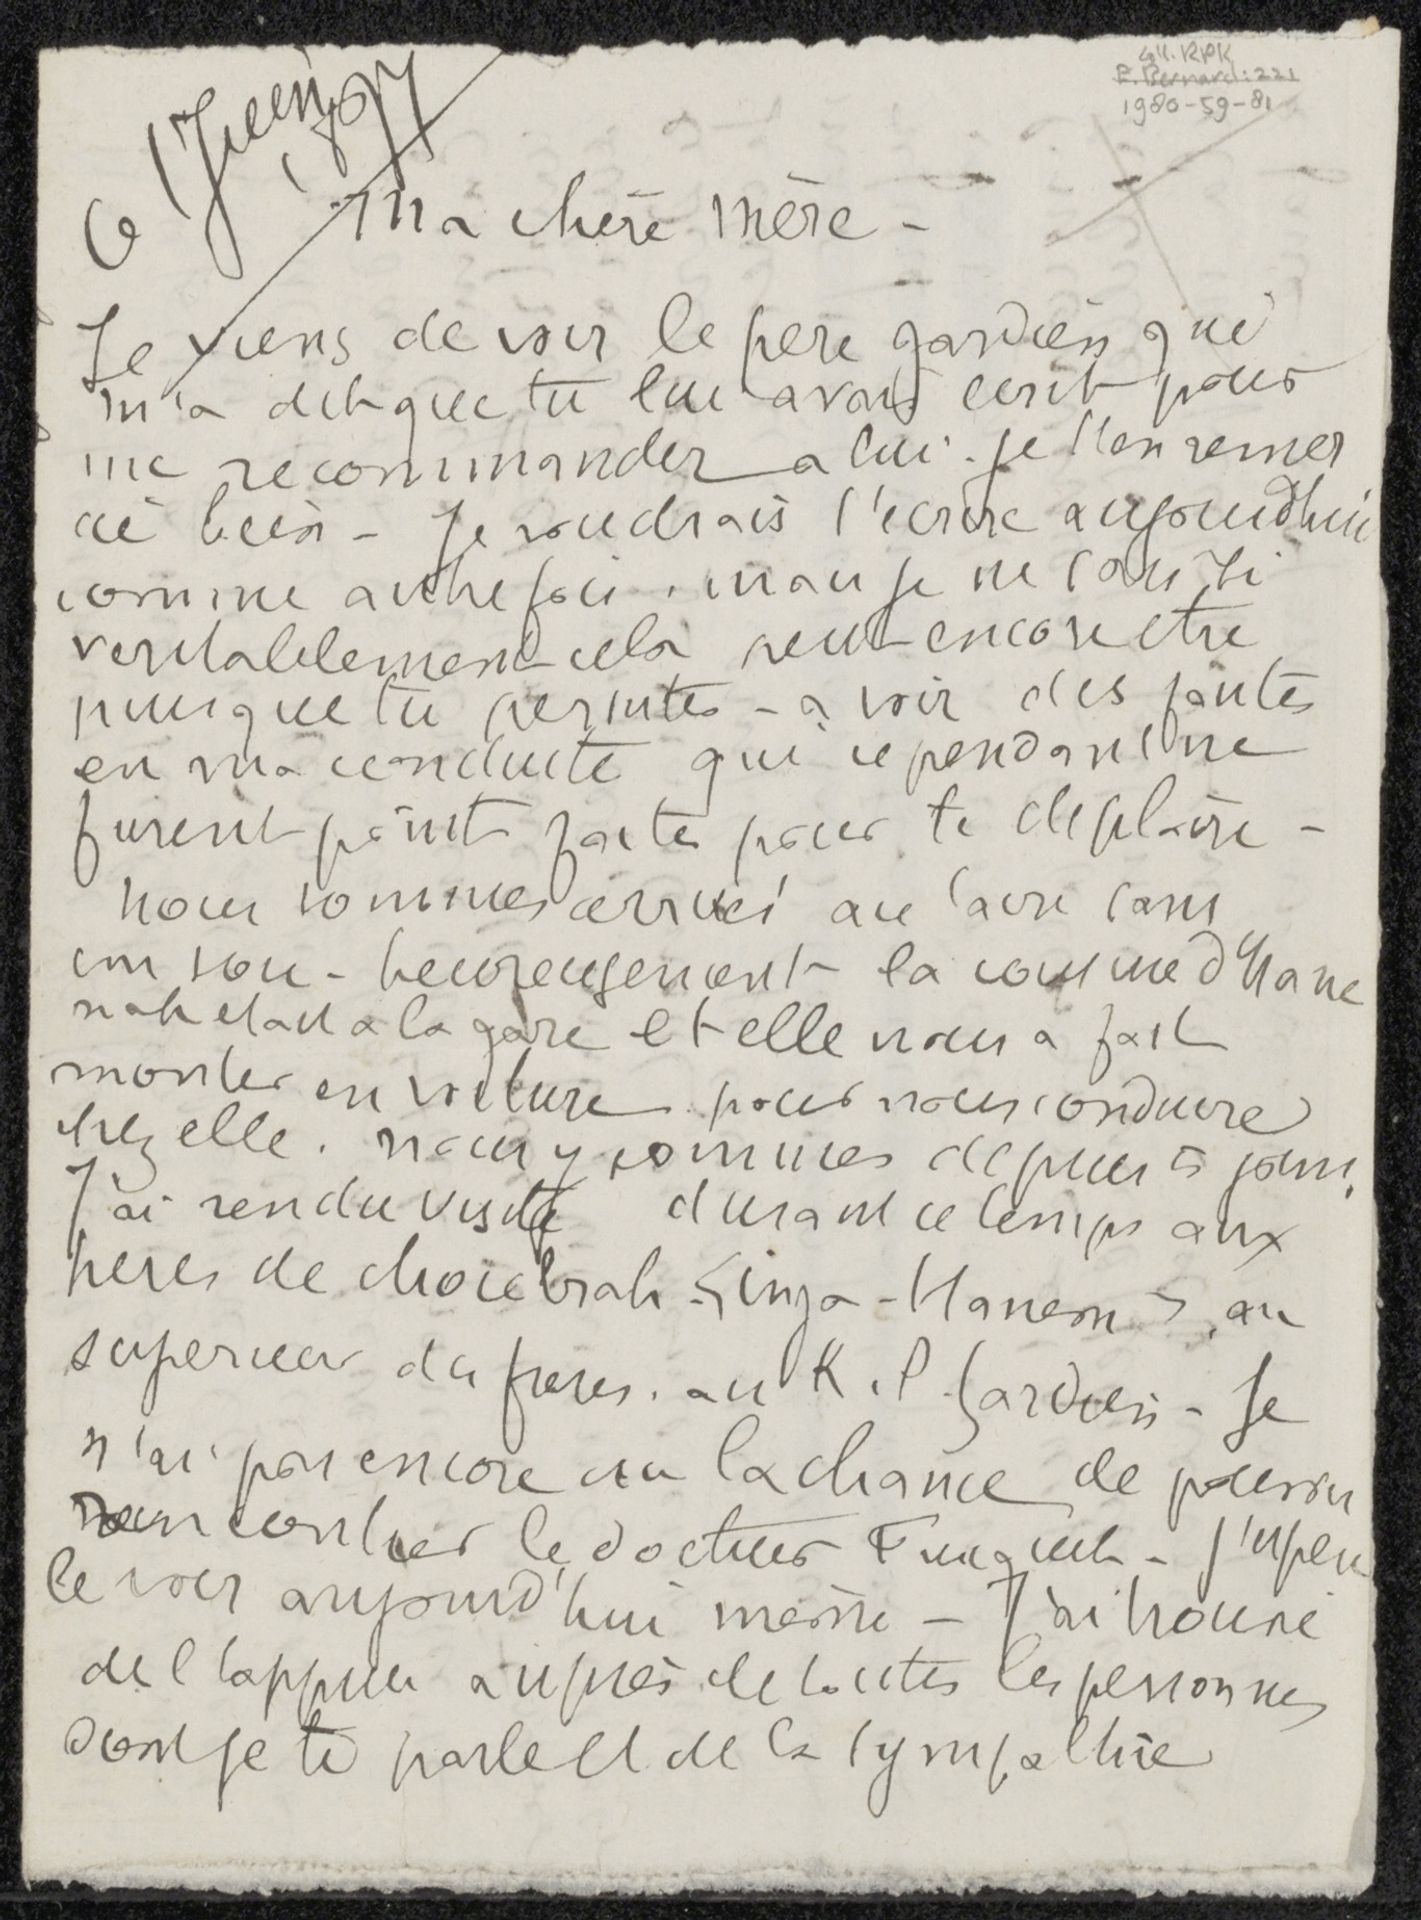 Gll. RPK
E. Bernard: 221
1980-59-81
6 Juin 1897
Ma chere mère -
Je viens de voir le pere gardien qui
m'a dit que tu lui avais ecrit pour
me recommander a lui. je t'en remer
cie bien - Je voudrais t'ecrire aujourdhui
comme autrefois. mais je ne sais si
veritablement cela peut encore etre
puisque tu persistes - a voir des fautes
en ma conduite qui cependant ne
furent point faites pour te deplaire -
nous sommes arrivés au Caire sans
un sou - heureusement la cousine d'Hane
nah etait a la gare et elle nous a fait
monter en voiture pour nous conduire
chez elle. nous y sommes depuis 5 jours.
J'ai rendu visite durant ce temps aux
peres de choubrah au
superieur des freres. au R. P. Gardien - Je
n'ai pas encore eu la chance de pouvoir
rencontrer le docteur Fouquet - j'espere
le voir aujourd'hui meme - J'ai trouvé
de l'appui auprès de toutes les personnes
dont je te parle et de la sympathie